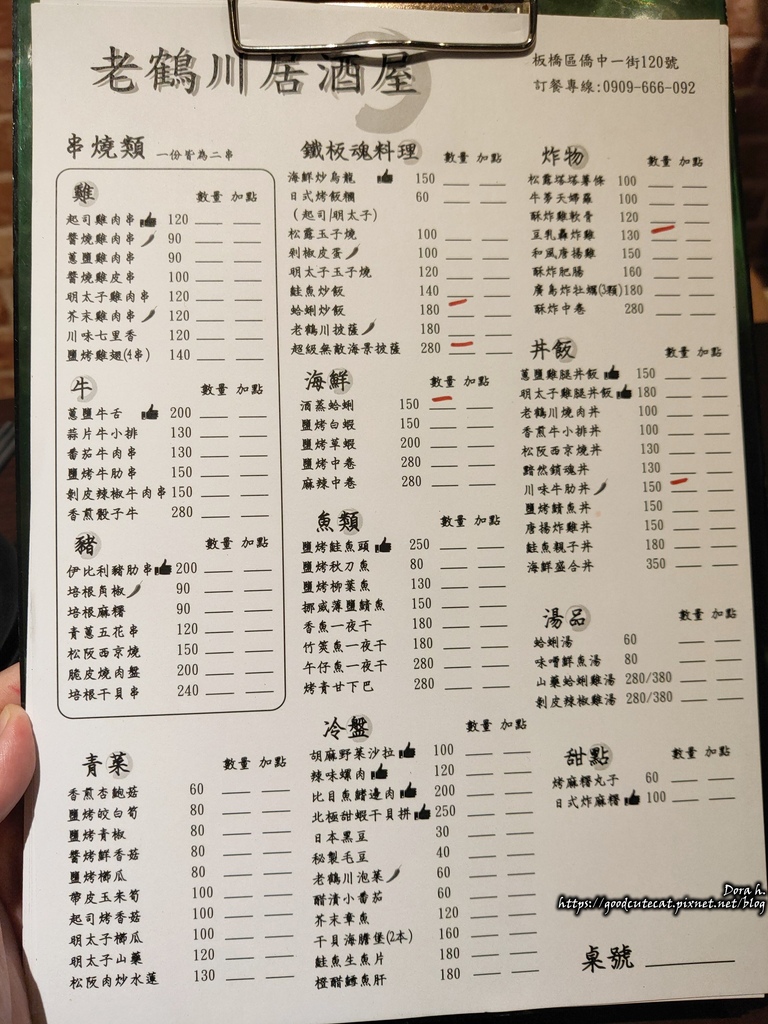 老鶴川居酒屋
板橋區僑中一街120號
訂餐專線:0909-666-092
串燒類 一份皆為二串
雞 數量 加點
起司雞肉串 120
醬燒雞肉串 90
蔥鹽雞肉串 90
醬燒雞皮串 100
明太子雞肉串 120
芥末雞肉串 120
川味七里香 120
鹽烤雞翅(4串) 140
牛 數量 加點
蔥鹽牛舌 200
蒜片牛小排 130
番茄牛肉串 130
鹽烤牛肋串 150
剝皮辣椒牛肉串 150
香煎骰子牛 280
豬 數量 加點
伊比利豬肋串 200
培根角椒 90
培根麻糬 90
青蔥五花串 120
松阪西京燒 150
脆皮燒肉盤 200
培根干貝串 240
青菜 數量 加點
香煎杏鮑菇 60
鹽烤皎白筍 80
鹽烤青椒 80
醬烤鮮香菇 80
鹽烤櫛瓜 80
帶皮玉米筍 100
起司烤香菇 100
明太子櫛瓜 100
明太子山藥 120
松阪肉炒水蓮 130
鐵板魂料理 數量 加點
海鮮炒烏龍 150
日式烤飯糰 60
(起司/明太子)
松露玉子燒 100
剁椒皮蛋 100
明太子玉子燒 120
鮭魚炒飯 140
蛤蜊炒飯 180
老鶴川披薩 180
超級無敵海景披薩 280
海鮮 數量 加點
酒蒸蛤蜊 150
鹽烤白蝦 150
鹽烤草蝦 200
鹽烤中卷 280
麻辣中卷 280
魚類 數量 加點
鹽烤鮭魚頭 250
鹽烤秋刀魚 80
鹽烤柳葉魚 130
挪威薄鹽鯖魚 150
香魚一夜干 180
竹筴魚一夜干 180
午仔魚一夜干 280
烤青甘下巴 280
冷盤 數量 加點
胡麻野菜沙拉 100
辣味螺肉 120
比目魚鰭邊肉 200
北極甜蝦干貝拼 250
日本黑豆 30
秘製毛豆 40
老鶴川泡菜 60
醋漬小番茄 60
芥末章魚 120
干貝海膽堡(2本) 160
鮭魚生魚片 180
橙醋鱈魚肝 180
炸物 數量 加點
松露塔塔薯條 100
牛蒡天婦羅 100
酥炸雞軟骨 120
豆乳轟炸雞 130
和風唐揚雞 150
酥炸肥腸 160
廣島炸牡蠣(3顆) 180
酥炸中卷 280
丼飯 數量 加點
蔥鹽雞腿丼飯 150
明太子雞腿丼飯 180
老鶴川燒肉丼 100
香煎牛小排丼 100
松阪西京燒丼 130
黯然銷魂丼 130
川味牛肋丼 150
鹽烤鯖魚丼 150
唐揚炸雞丼 150
鮭魚親子丼 180
海鮮盛合丼 350
湯品 數量 加點
蛤蜊湯 60
味噌鮮魚湯 80
山藥蛤蜊雞湯 280/380
剝皮辣椒雞湯 280/380
甜點 數量 加點
烤麻糬丸子 60
日式炸麻糬 100
Dora h.
https://goodcutecat.pixnet.net/blog
桌號